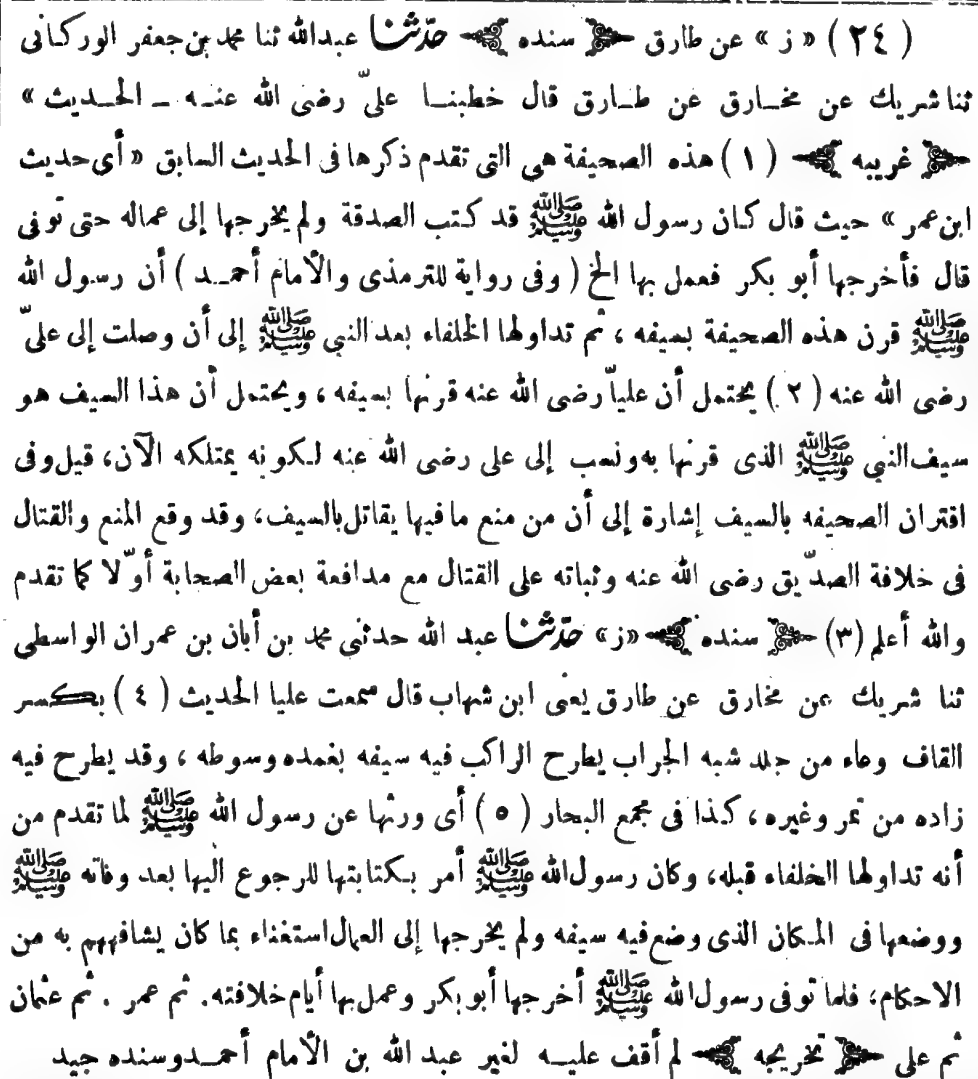 (٢٤) «ز» عن طارق ﴿ سنده ﴾ حدّثنا عبدالله ثنا محمد بن جعفر الوركانى
ثنا شريك عن مخارق عن طارق قال خطبنا علىّ رضى الله عنه ـ الحديث »
﴿ غريبه ﴾ (١) هذه الصحيفة هى التى تقدم ذكرها فى الحديث السابق « أى حديث
ابن عمر » حيث قال كان رسول الله ﷺ قد كتب الصدقة ولم يخرجها إلى عماله حتى توفى
قال فأخرجها أبو بكر فعمل بها الخ ( وفى رواية للترمذى والأمام أحمد ) أن رسول الله
ﷺ قرن هذه الصحيفة بسيفه ، ثم تداولها الخلفاء بعد النبي ﷺ إلى أن وصلت إلى علىّ
رضى الله عنه (٢) يحتمل أن علياّ رضى الله عنه قرنها بسيفه ، ويحتمل أن هذا السيف هو
سيف النبي ﷺ الذى قرنها به ونسب إلى على رضى الله عنه لكونه يمتلكه الآن، قيل وفى
اقتران الصحيفه بالسيف إشارة إلى أن من منع ما فيها يقاتل بالسيف، وقد وقع المنع والقتال
فى خلافة الصدّيق رضى الله عنه وثباته على القتال مع مدافعة بعض الصحابة أوّلا كما تقدم
والله أعلم (٣) ﴿ سنده ﴾ «ز» حدّثنا عبد الله حدثنى محمد بن أبان بن عمران الواسطى
ثنا شريك عن مخارق عن طارق يعنى ابن شهاب قال سمعت عليا الحديث (٤) بكسر
القاف وعاء من جلد شبه الجراب يطرح الراكب فيه سيفه بغمده وسوطه ، وقد يطرح فيه
زاده من تمر وغيره، كذا فى مجمع البحار (٥) أى ورثها عن رسول الله ﷺ لما تقدم من
أنه تداولها الخلفاء قبله، وكان رسول الله ﷺ أمر بكتابتها للرجوع اليها بعد وفاته ﷺ
ووضعها فى المكان الذى وضع فيه سيفه ولم يخرجها إلى العمال استغناء بما كان يشافههم به من
الاحكام، فلما توفى رسول الله ﷺ أخرجها أبو بكر وعمل بها أيام خلافته. ثم عمر . ثم عثمان
ثم على ﴿ تخريجه ﴾ لم أقف عليه لغير عبد الله بن الأمام أحمد وسنده جيد